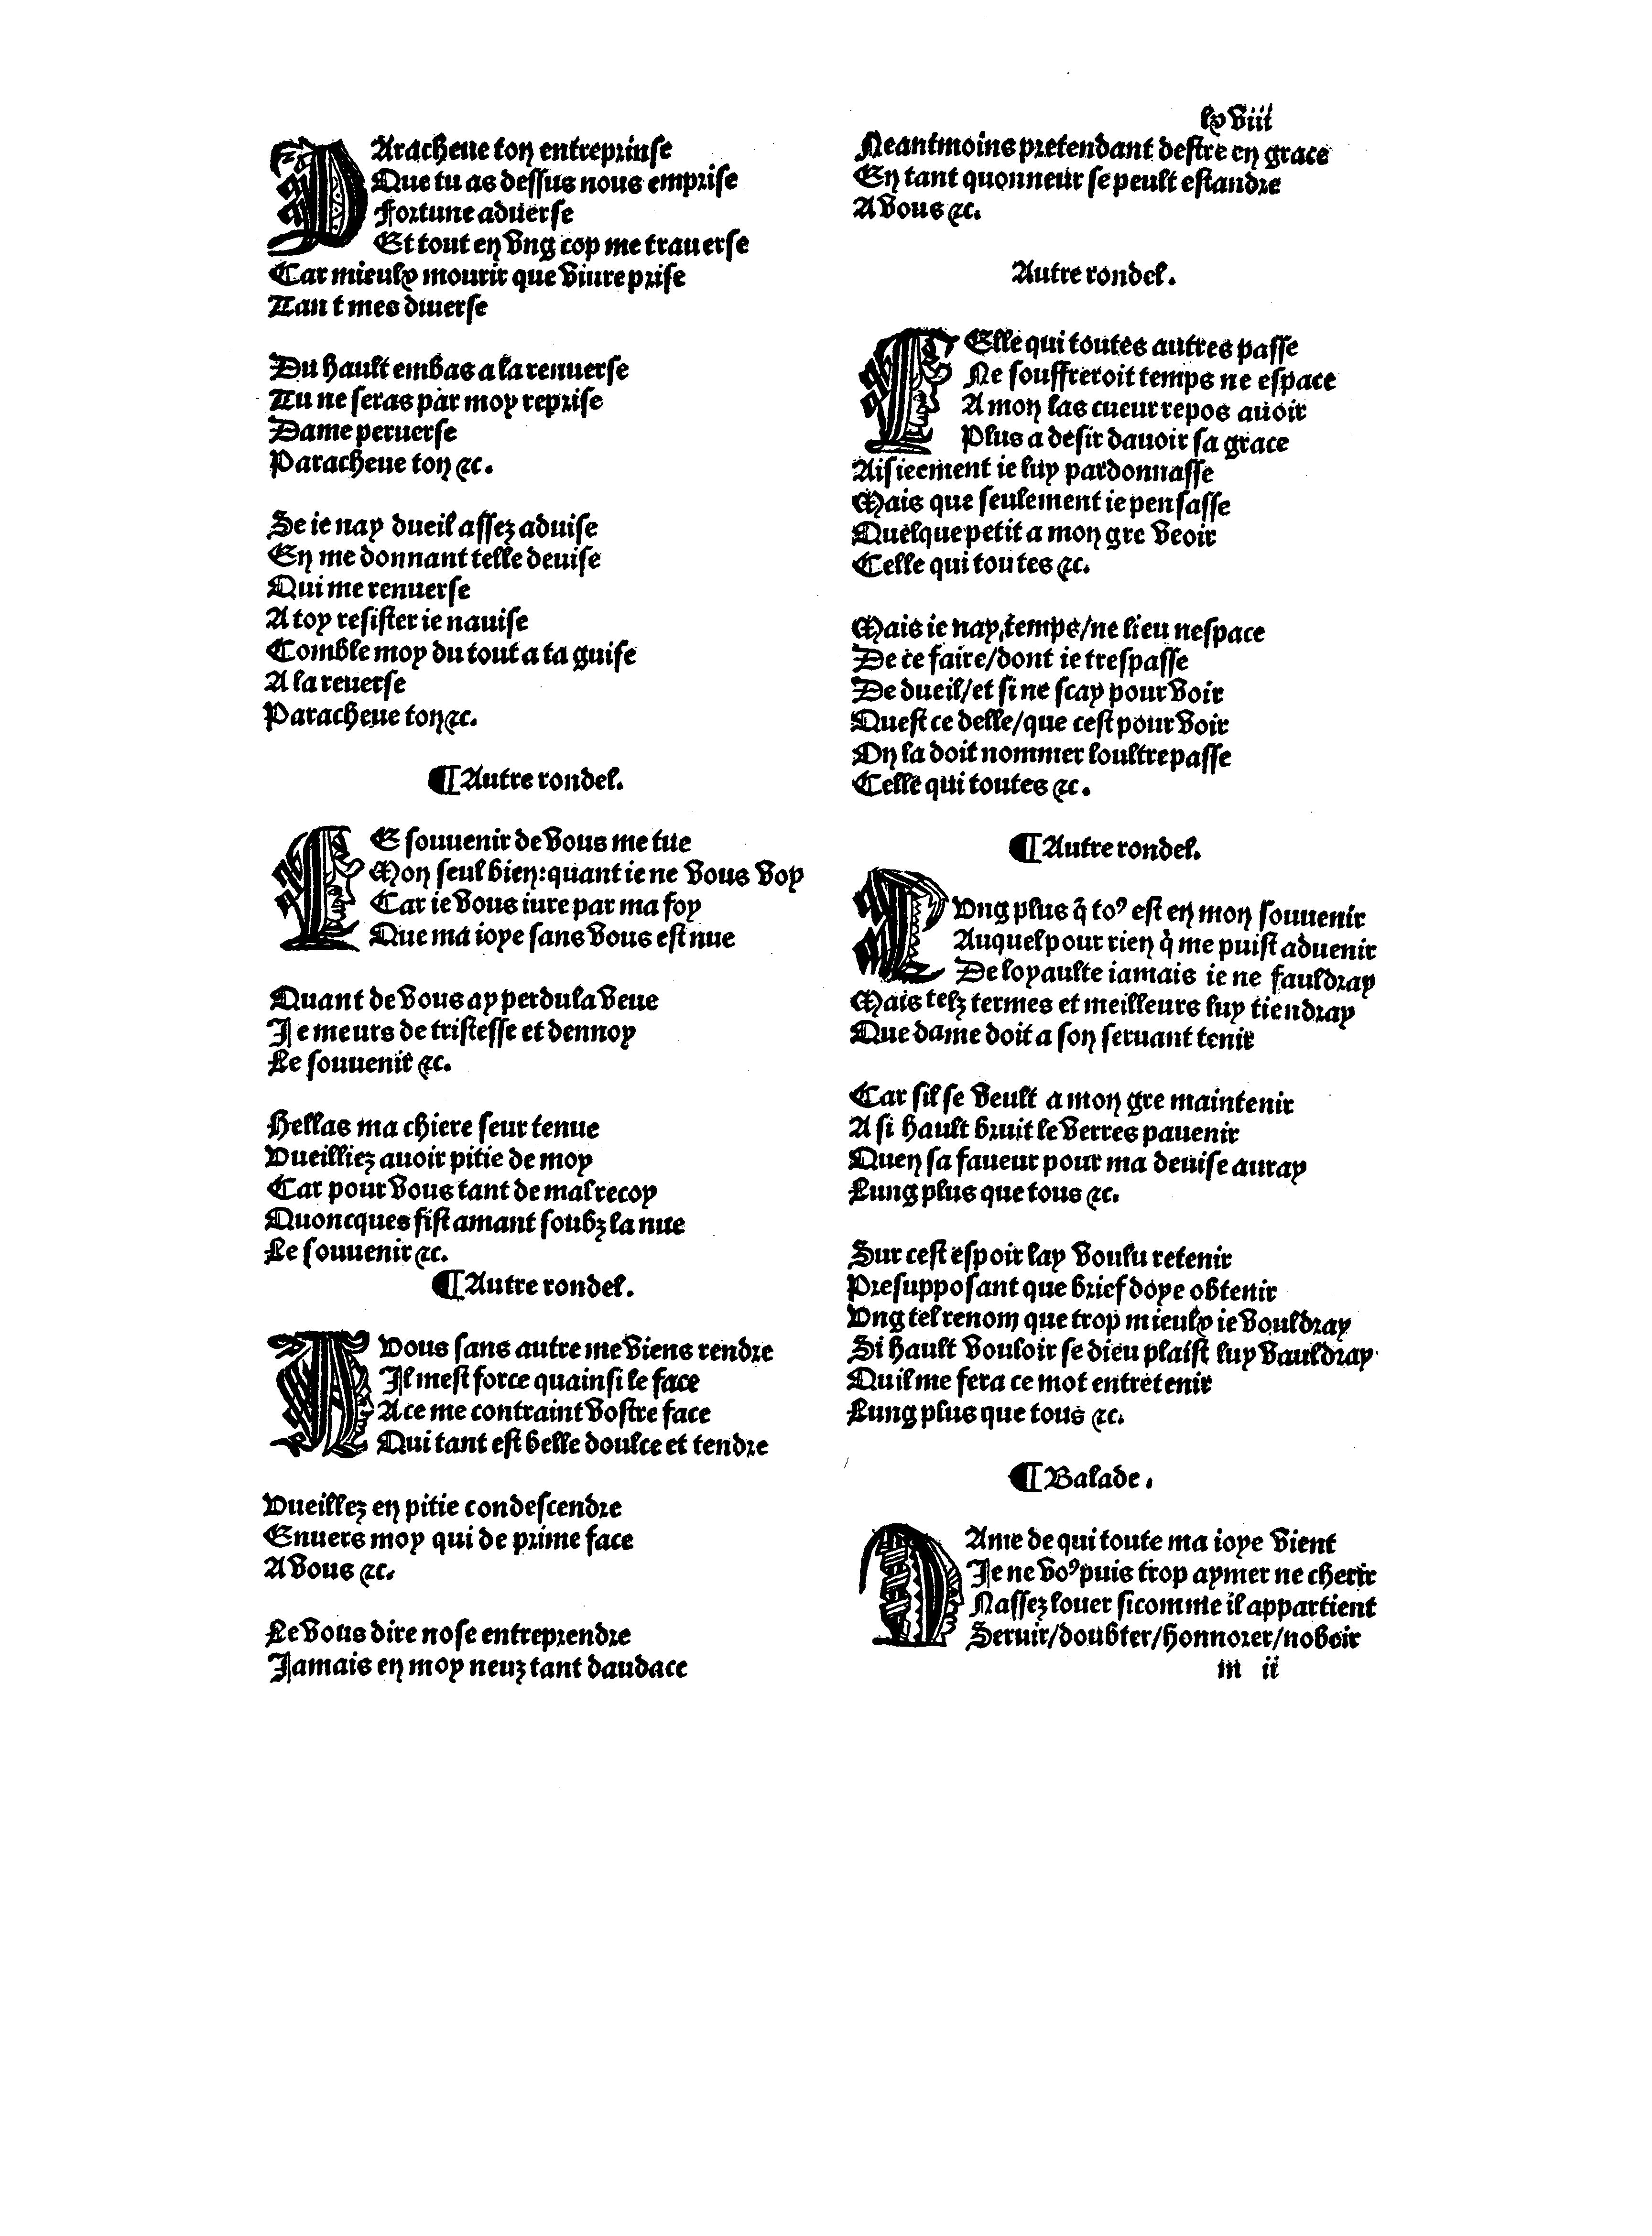 lxviii
PAracheue ton entreprinse
Que tu as dessus nous emprise
Fortune aduerse
Et tout en vng cop me trauerse
Car mieulx mourir que viure prise
Tan t mes diuerse
Du hault embas a la renuerse
Tu ne seras par moy reprise
Dame peruerse
Paracheue ton &c.
Se ie nay dueil assez aduise
En me donnant telle deuise
Qui me renuerse
A toy resister ie nauise
Comble moy du tout a ta guise
A la reuerse
Paracheue ton &c.
¶ Autre rondel.
LE souuenir de vous me tue
Mon seul bien: quant ie ne vous voy
Car ie vous iure par ma foy
Que ma ioye sans vous est nue
Quant de vous ay perdu la veue
Je meurs de tristesse et dennoy
Le souuenir &c.
Hellas ma chiere seur tenue
Vueilliez auoir pitie de moy
Car pour vous tant de mal recoy
Quoncques fist amant soubz la nue
Le souuenir &c.
¶ Autre rondel.
A Vous sans autre me viens rendre
Il mest force quainsi le face
A ce me contraint vostre face
Qui tant est belle doulce et tendre
Vueillez en pitie condescendre
Enuers moy qui de prime face
A vous &c.
Le vous dire nose entreprendre
Jamais en moy neuz tant daudace
Neantmoins pretendant destre en grace
En tant quonneur se peult estandre
A vous &c.
Autre rondel.
CElle qui toutes autres passe
Ne souffreroit temps ne espace
A mon las cueur repos auoir
Plus a desir dauoir sa grace
Aisieement ie luy pardonnasse
Mais que seulement ie pensasse
Quelque petit a mon gre veoir
Celle qui toutes &c.
Mais ie nay temps/ne lieu nespace
De ce faire/dont ie trespasse
De dueil/et si ne scay pour voir
Quest ce delle/que cest pour voir
On la doit nommer loultrepasse
Celle qui toutes &c.
¶ Autre rondel.
LVng plus q̄ to⁹ est en mon souuenir
Auquel pour rien q̇ me puist aduenir
De loyaulte iamais ie ne fauldray
Mais telz termes et meilleurs luy tiendray
Que dame doit a son seruant tenir
Car sil se veult a mon gre maintenir
A si hault bruit le verres pauenir
Quen sa faueur pour ma deuise auray
Lung plus que tous &c.
Sur cest espoir lay voulu retenir
Presupposant que brief doye obtenir
Vng tel renom que trop mieulx ie vouldray
Si hault vouloir se dieu plaist luy vauldray
Quil me fera ce mot entretenir
Lung plus que tous &c.
¶ Balade.
DAme de qui toute ma ioye vient
Je ne vo⁹ puis trop aymer ne cherir
Nassez louer sicomme il appartient
Seruir/doubter/honnorer/noboir
m ii